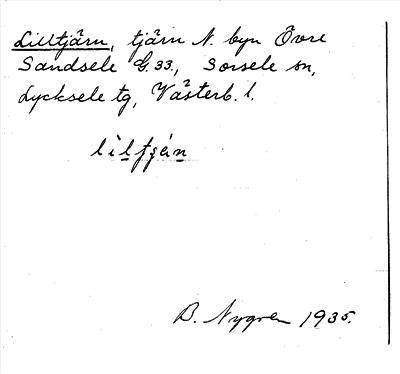 Lilltjärn, tjärn N. byn Övre
Sandsele G. 33., Sorsele sn,
Lycksele tg, Västerb. l.
B. Nygren 1935.